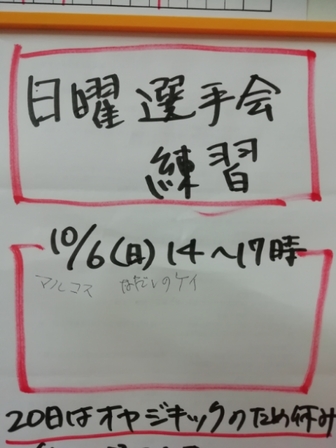 日曜選手会
練習
10/6(日)14～17時
マルコス はだしのケイ
20日はオヤジキックのため休み